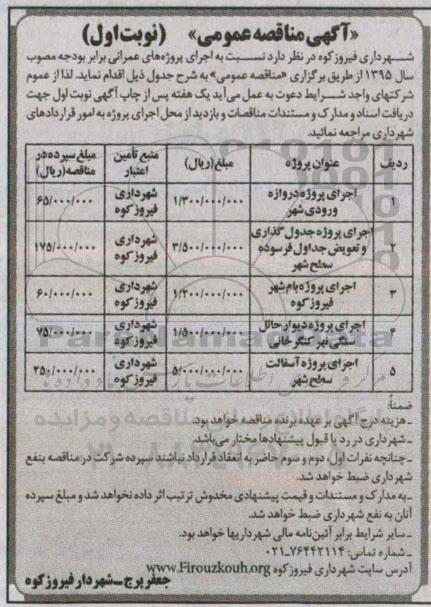 «آگهی مناقصه عمومی» (نوبت اول)
شهرداری فیروزکوه در نظر دارد نسبت به اجرای پروژه‌های عمرانی برابر بودجه مصوب
سال ۱۳۹۵ از طریق برگزاری «مناقصه عمومی» به شرح جدول ذیل اقدام نماید. لذا از عموم
شرکتهای واجد شرایط دعوت به عمل می‌آید یک هفته پس از چاپ آگهی نوبت اول جهت
دریافت اسناد و مدارک و مستندات مناقصات و بازدید از محل اجرای پروژه به امور قراردادهای
شهرداری مراجعه نمائید.
ردیف عنوان پروژه مبلغ (ریال) منبع تأمین اعتبار مبلغ سپرده در مناقصه (ریال)
۱ اجرای پروژه دروازه ورودی شهر ۱/۳۰۰/۰۰۰/۰۰۰ شهرداری فیروزکوه ۶۵/۰۰۰/۰۰۰
۲ اجرای پروژه جدول گذاری و تعویض جداول فرسوده سطح شهر ۳/۵۰۰/۰۰۰/۰۰۰ شهرداری فیروزکوه ۱۷۵/۰۰۰/۰۰۰
۳ اجرای پروژه بام شهر فیروزکوه ۱/۲۰۰/۰۰۰/۰۰۰ شهرداری فیروزکوه ۶۰/۰۰۰/۰۰۰
۴ اجرای پروژه دیوار حائل سنگی نهر کنگرخانی ۱/۵۰۰/۰۰۰/۰۰۰ شهرداری فیروزکوه ۷۵/۰۰۰/۰۰۰
۵ اجرای پروژه آسفالت سطح شهر ۵/۰۰۰/۰۰۰/۰۰۰ شهرداری فیروزکوه ۲۵۰/۰۰۰/۰۰۰
ضمناً:
ـ هزینه درج آگهی بر عهده برنده مناقصه خواهد بود.
ـ شهرداری در رد یا قبول پیشنهادها مختار می‌باشد.
ـ چنانچه نفرات اول، دوم و سوم حاضر به انعقاد قرارداد نباشند سپرده شرکت در مناقصه بنفع
شهرداری ضبط خواهد شد.
ـ به مدارک و مستندات و قیمت پیشنهادی مخدوش ترتیب اثر داده نخواهد شد و مبلغ سپرده
آنان به نفع شهرداری ضبط خواهد شد.
ـ سایر شرایط برابر آئین‌نامه مالی شهرداریها خواهد بود.
ـ شماره تماس: ۷۶۴۴۲۱۱۴-۰۲۱
آدرس سایت شهرداری فیروزکوه www.Firouzkouh.org
جعفر پرچ ـ شهردار فیروزکوه